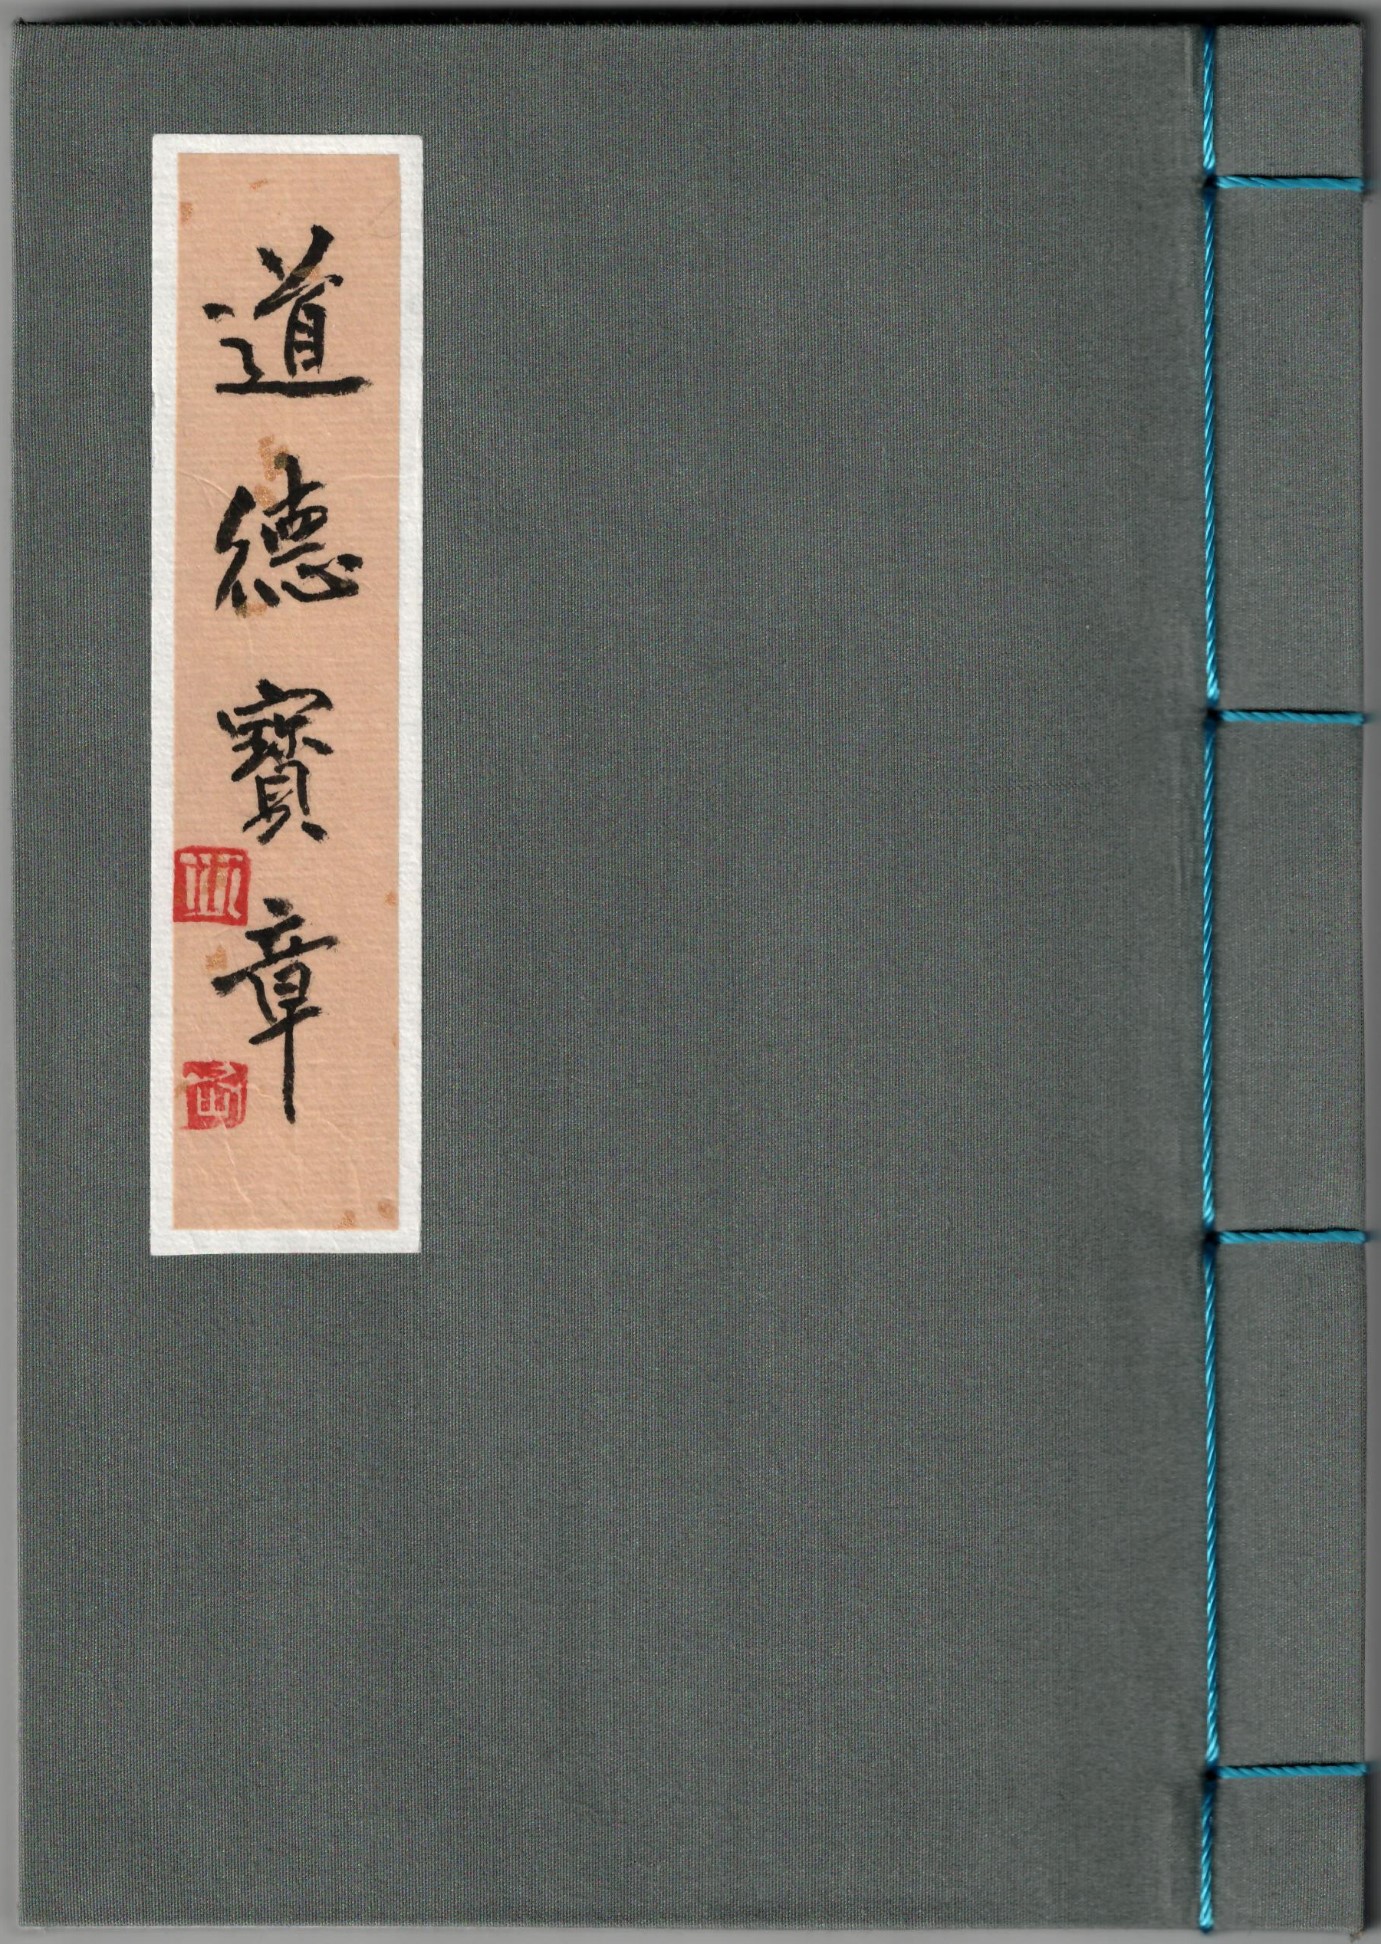 道德寶章